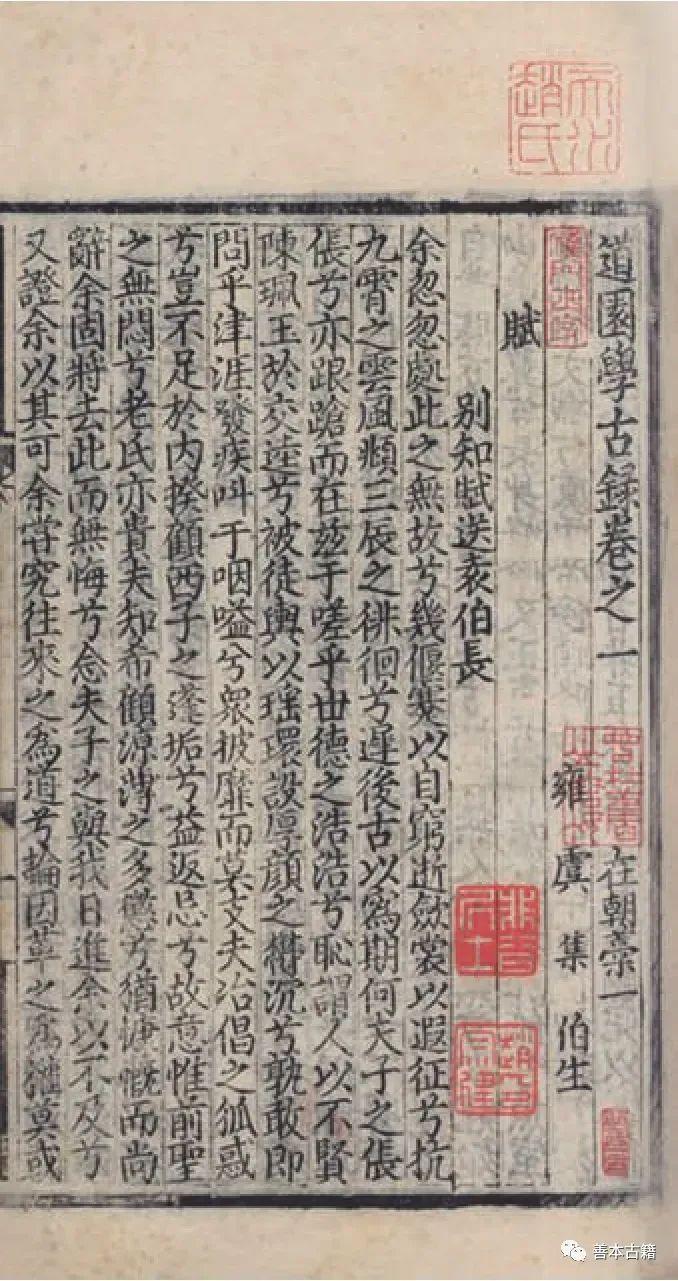 道園學古錄卷之一
在朝藁一
雍虞集伯生
賦
別知賦送袁伯長
余忽忽處此之無故兮幾偃蹇以自窮逝斂裳以遐征兮抗
九霄之雲風頫三辰之徘徊兮遲後古以爲期何夫子之倀
倀兮亦踉蹌而在茲于嗟乎世德之浩浩兮恥謂人以不賢
陳珮玉於交逵兮被徒輿以瑶環設厚顔之沉兮孰敢即
問乎津涯發疾叫于咽嗌兮衆披靡而莫支夫冶倡之狐惑
兮豈不足於内揆顧西子之蓬垢兮益返忌兮故意惟前聖
之無悶兮老氏亦貴夫知希顧凉薄之多愆兮猶慷慨而尚
辭余固將去此而無悔兮念夫子之與我日進余以不及兮
又證余以其可余嘗究往來之爲道兮論因革之爲權莫或
趙氏
善本古籍